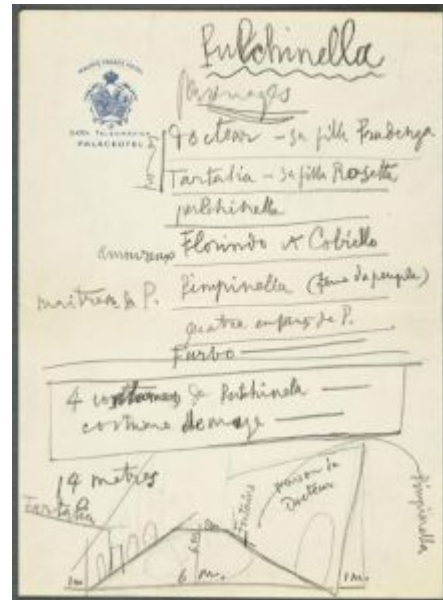 Pulchinella
Personages
PALACE HOTEL
Docteur - sa fille Prudenza
Tartalia - sa fille Rosetta
pulchinella
amoureux Florindo et Cobiello
maitresse de P. Pimpinella (feme du peuple)
quatre enfans de P.
Furbo
4 costumes de Pulchinela
costume de mage
14 metres
Tartalia
maison du
Docteur
Fontaine
Pimpinella
6 m.
1 m.
1 m.